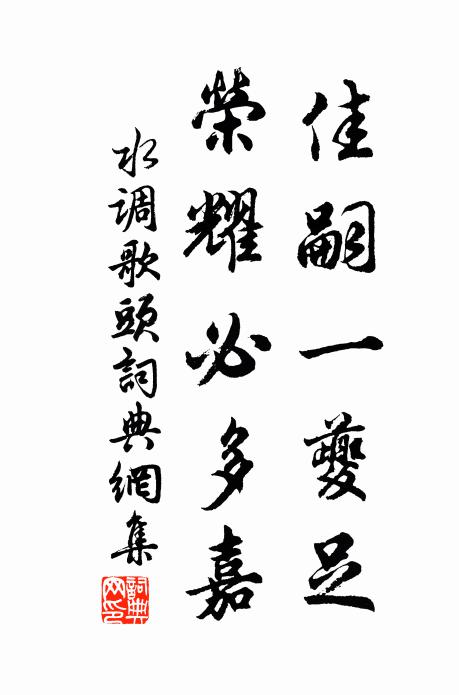 佳嗣一夔足
榮耀必多嘉
水調歌頭詞典網集
詞典網印